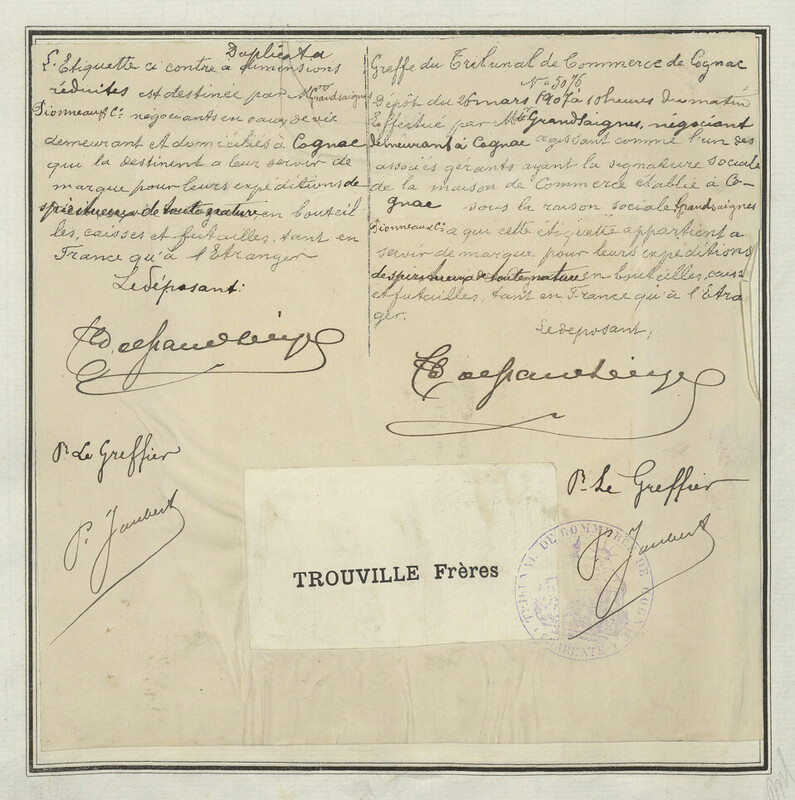 Duplicata
L'Etiquette ci contre à dimensions
réduites est destinée par Mrs Grandsaignes
Dionneau & Cie négociants en eaux de vie
demeurant et domiciliés à Cognac
qui la destinent a leur servir de
marque pour leurs expéditions de
spiritueux de toute nature en bouteil
les, caisses et futailles, tant en
France qu'à l'Etranger
Le déposant:
P. Le Greffier
P. Jaubert
Greffe du Tribunal de Commerce de Cognac
No 5076
Dépôt du 26 mars 1907 à 10 heures du matin
Effectué par Mr de GrandSaignes, négociant
demeurant à Cognac agissant comme l'un des
associés gérants ayant la signature sociale
de la maison de Commerce établie à Co-
gnac sous la raison sociale Grandsaignes
Dionneau & Cie a qui cette étiquette appartient a
servir de marque pour leurs expéditions
de spiritueux de toute nature en bouteilles, caiss
et futailles, tant en France qu'à l'Etra
ger.
Le déposant,
P. Le Greffier
P. Jaubert
TROUVILLE Frères
TRIBUNAL DE COMMERCE DE COGNAC
CHARENTE